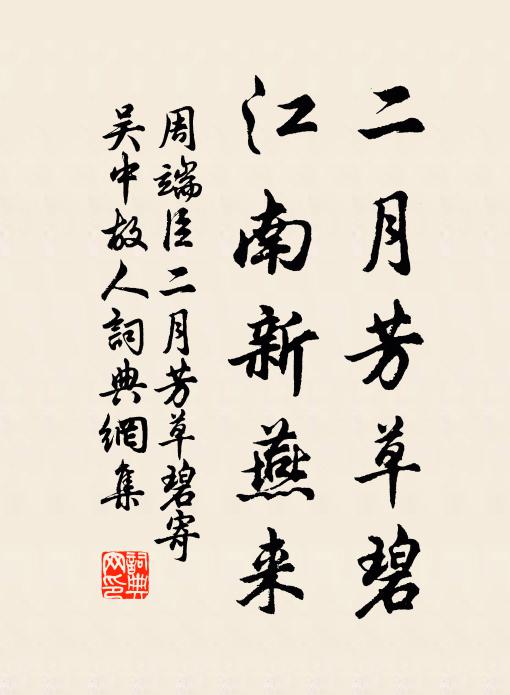 二月芳草碧
江南新燕来
周端臣二月芳草碧寄
吴中故人詞典網集
詞典网印